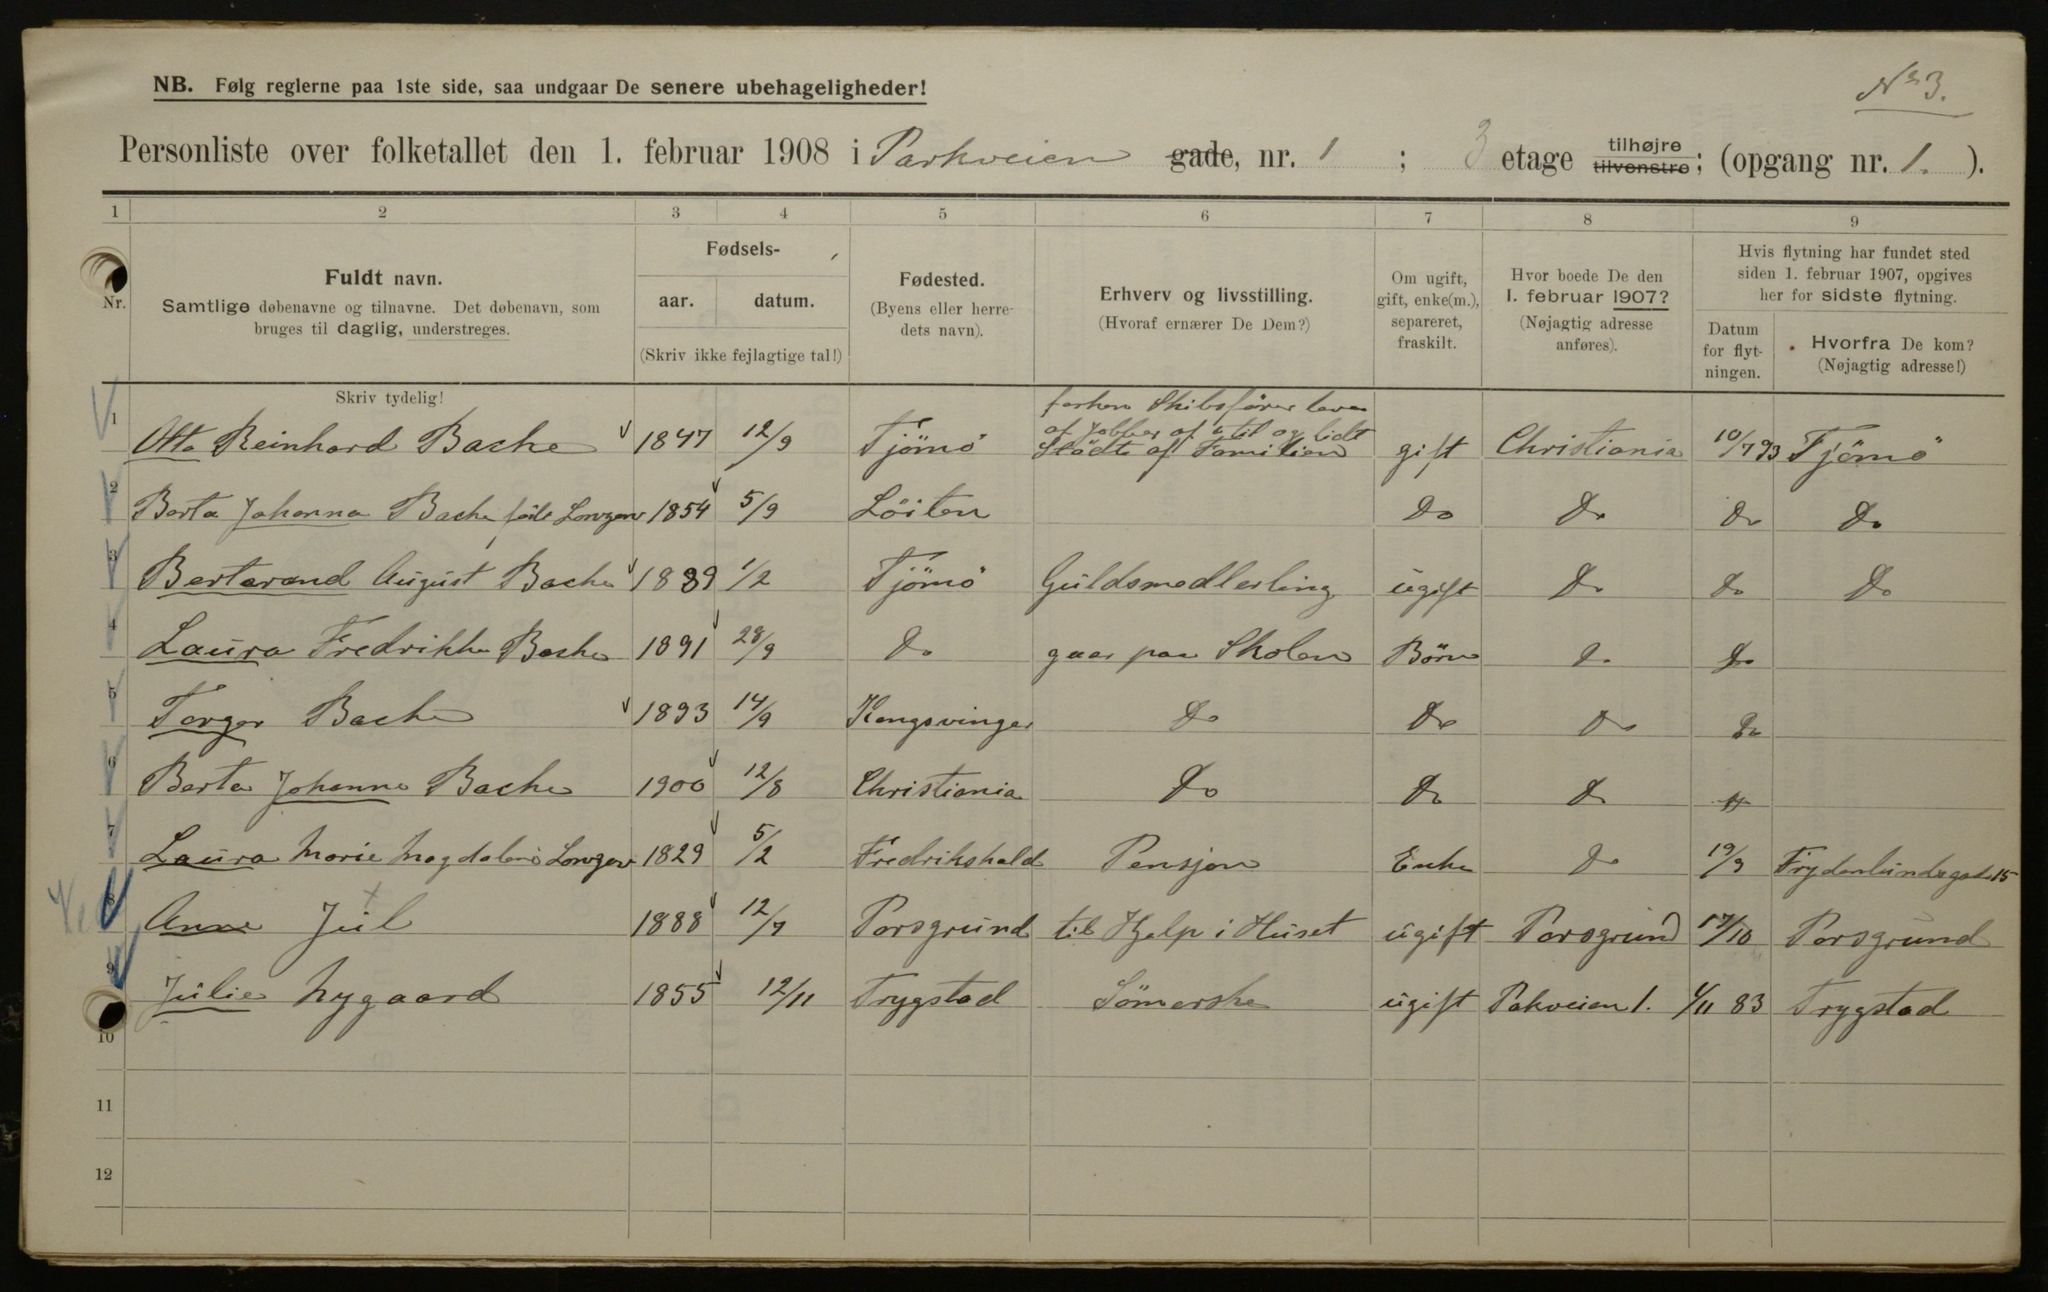 No 3.
NB. Følg reglerne paa 1ste side, saa undgaar De senere ubehageligheder!
Personliste over folketallet den 1. februar 1908 i Parkveien gade, nr. 1 ; 3 etage tilhøjre tilvenstre; (opgang nr. 1. ).
1 2 3 4 5 6 7 8 9
Nr.
Fuldt navn.
Samtlige døbenavne og tilnavne. Det døbenavn, som
bruges til daglig, understreges.
Skriv tydelig!
Fødsels-
aar. datum.
(Skriv ikke fejlagtige tal!)
Fødested.
(Byens eller herre-
dets navn).
Erhverv og livsstilling.
(Hvoraf ernærer De Dem?)
Om ugift,
gift, enke(m.),
separeret,
fraskilt.
Hvor boede De den
1. februar 1907?
(Nøjagtig adresse
anføres).
Hvis flytning har fundet sted
siden 1. februar 1907, opgives
her for sidste flytning.
Datum
for flyt-
ningen.
Hvorfra De kom?
(Nøjagtig adresse!)
1 Otto Reinhard Bache 1847 12/9 Tjömö forhen Skibsfører lever
af Jobber af & til og lidt
Stödte af Familien gift Christiania 10/7 93 Tjömö
2 Berta Johanna Bache föde 1854 5/9 Löiten Do Do Do Do
3 Bertarand August Bache 1889 1/2 Tjömö Guldsmedlerling ugift Do Do Do
4 Laura Fredrikke Bache 1891 28/9 Do gaar paa Skolen Börn Do Do
5 Torger Bache 1893 14/9 Kongsvinger Do Do Do Do
6 Berta Johanne Bache 1900 12/8 Christiania Do Do Do
7 Laura Marie Magdalene 1829 5/2 Fredrikshald Pensjon Enke Do 19/9 Frydenlundsgade 15
8 Anne Jul 1888 12/7 Porsgrund til Hjelp i Huset ugift Porsgrund 17/10 Porsgrund
9 Julie Nygaard 1855 12/11 Trygstad Sömerske ugift Pakveien 1. 1/11 83 Trygstad
10
11
12